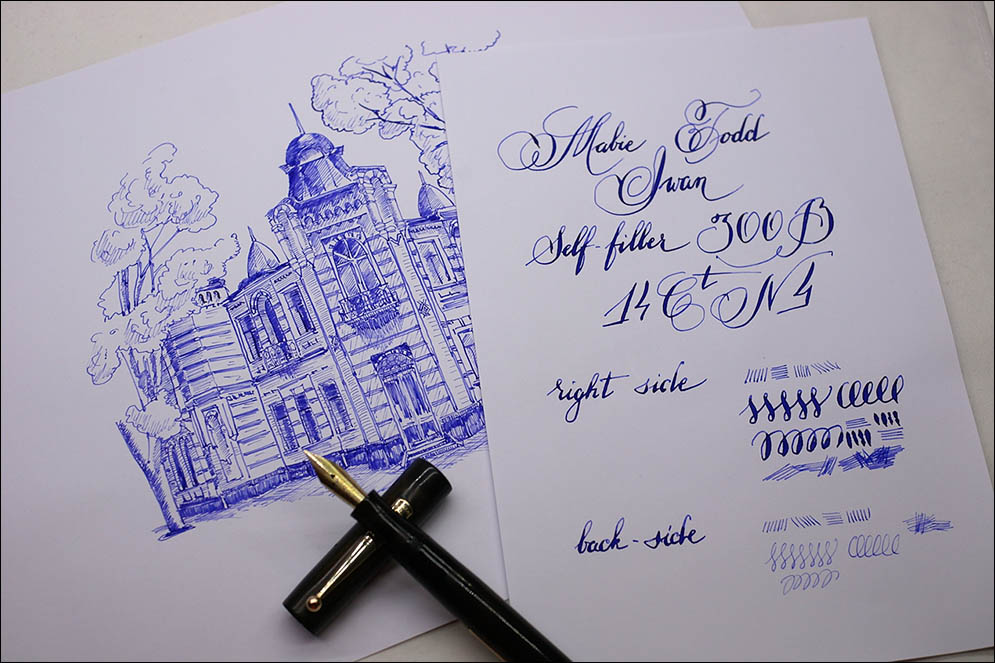 Mabie Todd
Swan
Self-filler 300B
14 Ct N4
right side
back-side